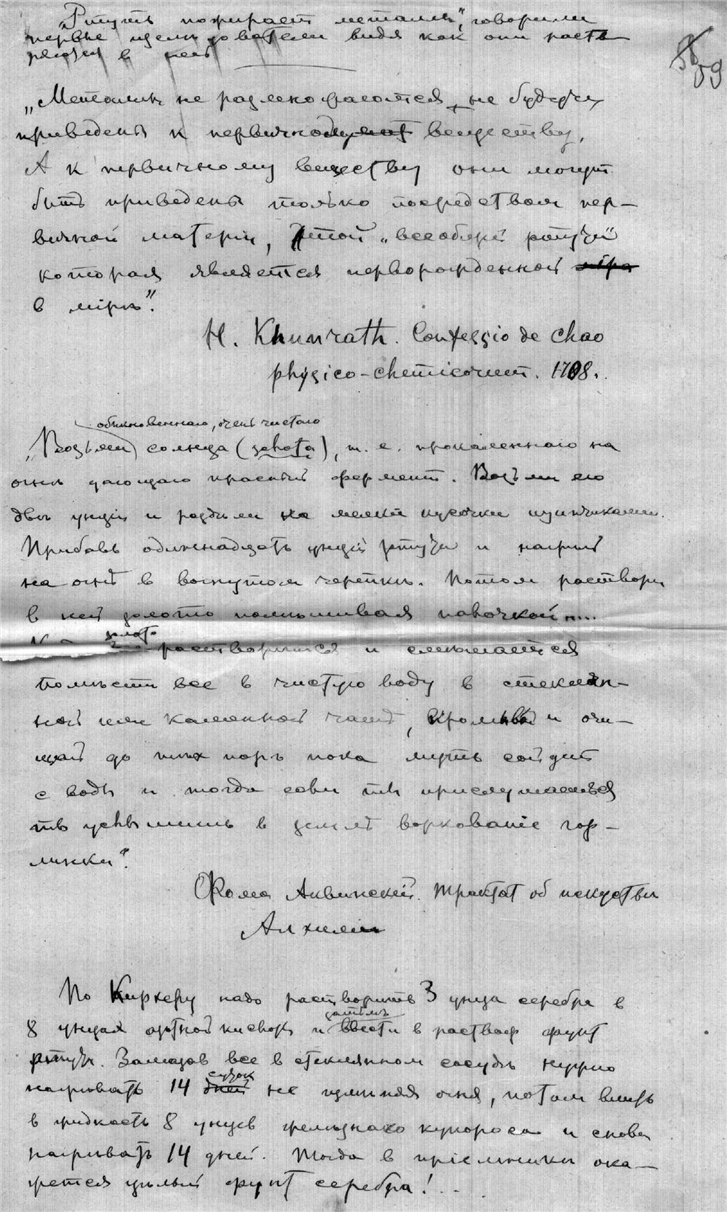 „Ртуть пожирает металлы", говорили
первые исследователи видя как они раство
ряются в ней
59
„Металлы не разлагаются, не будучи
приведены к первичному веществу.
А к первичному веществу они могут
быть приведены только посредством пер-
вичной матерiи, этой „всеобщей ртути"
которая является перворожденной
в мiрѣ".
H. Khunrath. Confessio de Chao
physico-chemicorum. 1708.
обыкновеннаго, очень чистаго
„Возьми солнца (золота), т. е. прокаленнаго на
огнѣ дающаго красный фермент. Возьми его
двѣ унцiи и раздѣли на мелкiе кусочки щипчиками.
Прибавь одиннадцать унцiй ртути и нагрѣй
на огнѣ в вогнутом черепкѣ. Потом раствори
в ней золото помѣшивая палочкой....
золото
растворится и смѣшается
помѣсти все в чистую воду в стеклян-
ной или каменной чашѣ, промывай и очи-
щай до тѣх поръ пока муть сойдет
с воды и тогда если ты прислушаешься
ты услышишь в землѣ воркованiе гор-
линки".
Фома Аквинский. Трактат об искусствѣ
Алхимiи
По Кирхеру надо растворить 3 унца серебра в
8 унцах азотной кислоты и
затѣмъ
ввести в раствор фунт
ртути. Замазов все в стеклянном сосудѣ нужно
суток
нагрѣвать 14 дней не измѣняя огня, потом влить
в жидкость 8 унцев желѣзнаго купороса и снова
нагрѣвать 14 дней. Тогда в прiемникѣ ока-
жется цѣлый фунт серебра!..